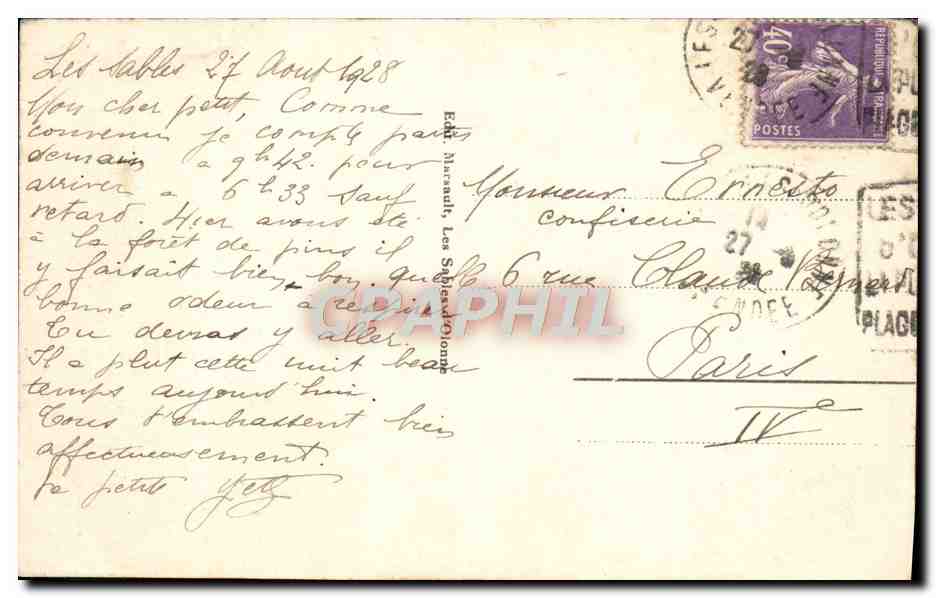 Les Sables 27 Aout 1928
Mon cher petit, Comme
convenu je compte partir
demain a 9h42. pour
arriver a 6h33 sauf
retard. Hier avons été
à la forêt de pins il
y faisait bien bon, quelle
bonne odeur à respirer
Tu devras y aller.
Il a plut cette nuit beau
temps aujourd'hui.
Tous t'embrassent bien
affectueusement.
Ta petite
Edit. Marsault, Les Sables-d'Olonne
40c
REPUBLIQUE FRANCAISE
POSTES
Monsieur Ernesto
confiserie
6 rue Claude
Paris
IVe
27
28
VENDEE
LES
PLAGE
CPAPHIL